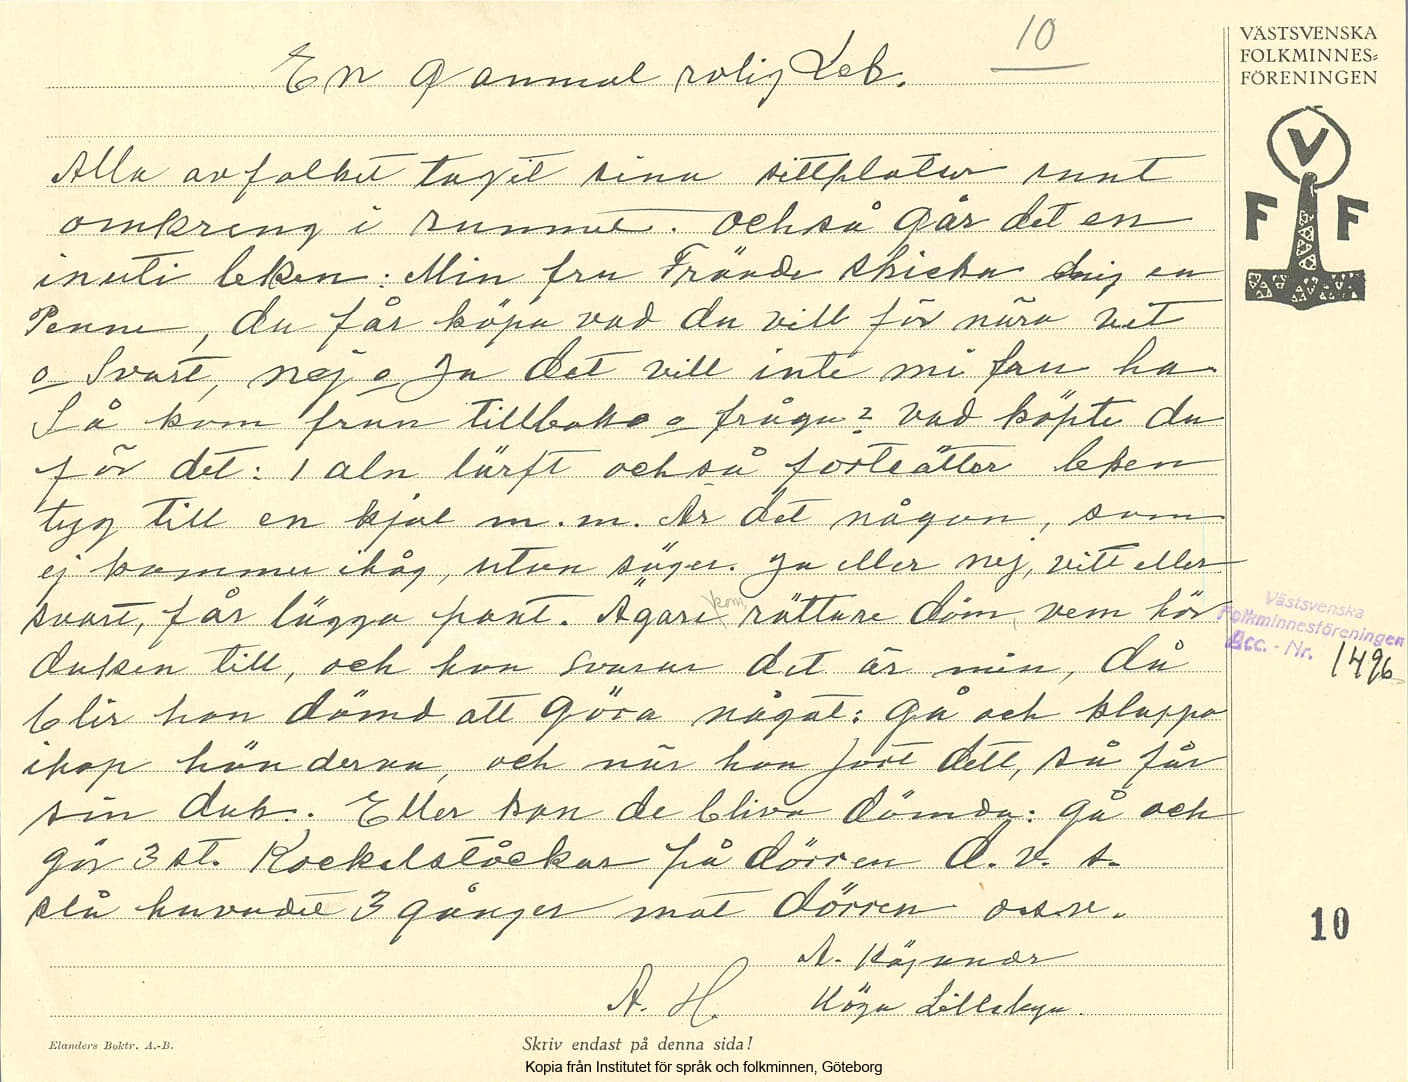 10
VÄSTSVENSKA
FOLKMINNES=
FÖRENINGEN
En Gammal rolig Lek.
V
F F
Alla av folket tagit sina sittplatser runt
omkring i rummet. Ochså går det en
inuti leken: Min fru Frände skicka dig en
Penne, du får köpa vad du vill för nära vit
o Svart, nej o Ja det vill inte mi fru ha.
Så kom frun tillbaka o fråga? Vad köpte du
för det: 1 aln lärft ochså fortsätter leken
tyg till en kjol m.m. Är det någon, som
ej kommer ihåg, utan säger. Ja eller nej, vitt eller
svart, får lägga pant. Ägare kom, rättare döm, vem hör
duken till, och hon svarar det är min, då
blir hon dömd att göra något: gå och klappa
ihop händerna, och när hon jort dett, så får
sin duk. Eller kan de bliva dömda: gå och
gör 3 st. Kockelstöckar på dörren d.v.s.
slå huvudet 3 gånger mot dörren o.s.v.
Västsvenska
Folkminnesföreningen
Acc. - Nr. 1496
10
A. Höga
A. H. Höga Lillstuga.
Elanders Boktr. A.-B.
Skriv endast på denna sida!
Kopia från Institutet för språk och folkminnen, Göteborg